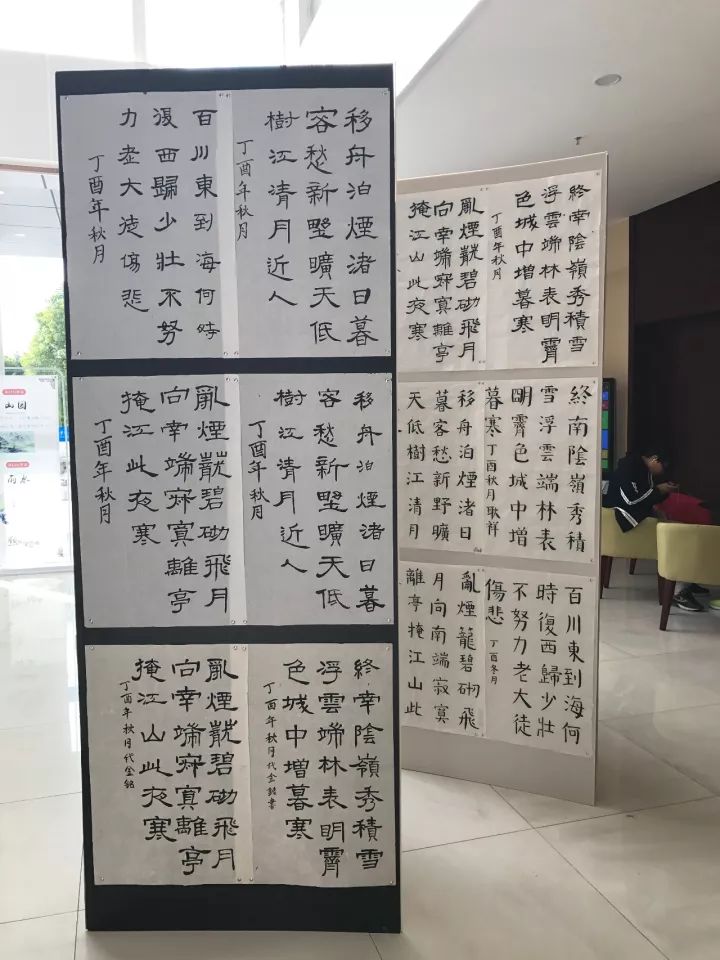 移舟泊煙渚日暮
客愁新墅曠天低
樹江清月近人
丁酉年秋月
百川東到海何時
復西歸少壯不努
力老大徒傷悲
丁酉年秋月
移舟泊煙渚日暮
客愁新墅曠天低
樹江清月近人
丁酉年秋月
亂煙籠碧砌飛月
向南端寂寞離亭
掩江此夜寒
丁酉年秋月
終南陰嶺秀積雪
浮雲端林表明霽
色城中增暮寒
丁酉年秋月代金銘書
亂煙籠碧砌飛月
向南端寂寞離亭
掩江山此夜寒
丁酉年秋月代金銘
終南陰嶺秀積雪
浮雲端林表明霽
色城中增暮寒
丁酉年秋月
亂煙籠碧砌飛月
向南端寂寞離亭
掩江山此夜寒
終南陰嶺秀積
雪浮雲端林表
明霽色城中增
暮寒 丁酉秋月
移舟泊煙渚日
暮客愁新野曠
天低樹江清月
百川東到海何
時復西歸少壯
不努力老大徒
傷悲 丁酉冬月
亂煙籠碧砌飛
月向南端寂寞
離亭掩江山此
雨水